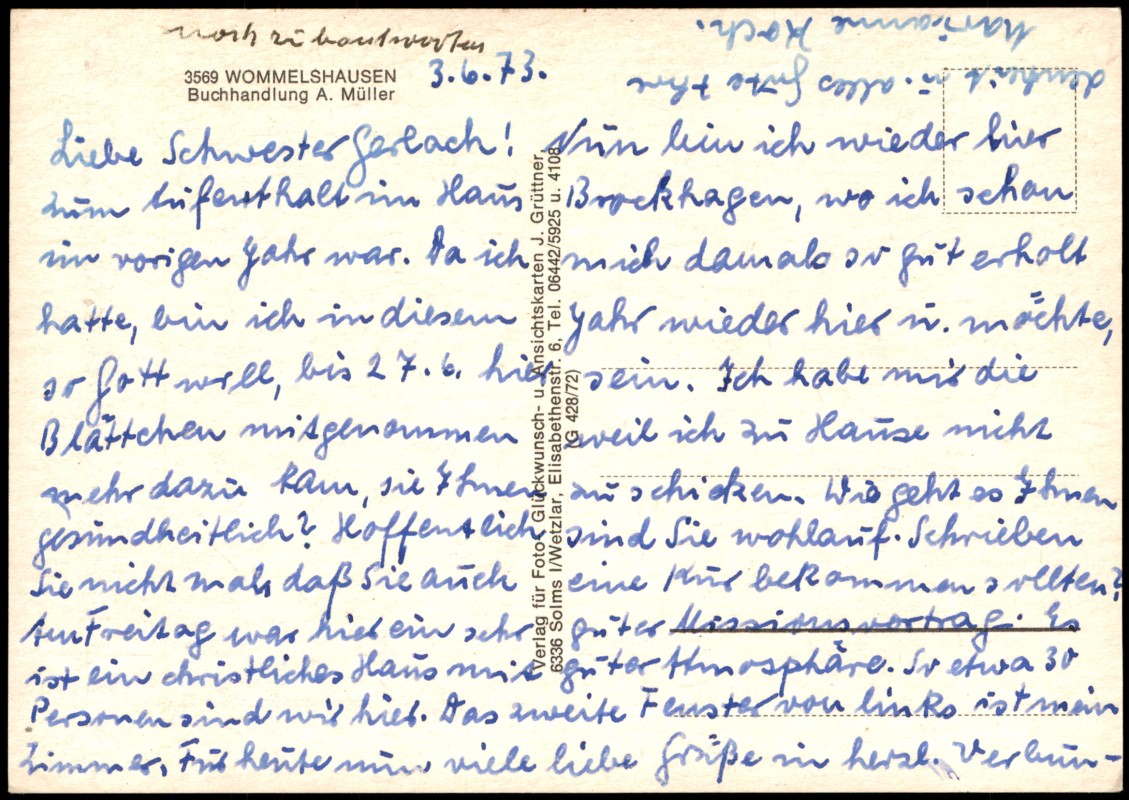 noch zu beantworten
3569 WOMMELSHAUSEN
Buchhandlung A. Müller
3.6.73.
Liebe Schwester Gerlach! Nun bin ich wieder hier
zum Aufenthalt im Haus Brockhagen, wo ich schon
im vorigen Jahr war. Da ich mich damals so gut erholt
hatte, bin ich in diesem Jahr wieder hier u. möchte,
so Gott will, bis 27.6. hier sein. Ich habe mir die
Blättchen mitgenommen weil ich zu Hause nicht
mehr dazu kam, sie Ihnen zu schicken. Wie geht es Ihnen
gesundheitlich? Hoffentlich sind Sie wohlauf. Schrieben
Sie nicht mal, daß Sie auch eine Kur bekommen sollten?
Am Freitag war hier ein sehr guter Missionsvortrag. Es
ist ein christliches Haus mit guter Atmosphäre. So etwa 30
Personen sind wir hier. Das zweite Fenster von links ist mein
Zimmer. Für heute nun viele liebe Grüße in herzl. Verbun-
denheit u. alles Gute Ihre
Marianne Koch.
Verlag für Foto-, Glückwunsch- u. Ansichtskarten J. Grüttner,
6336 Solms I/Wetzlar, Elisabethenstr. 6, Tel. 06442/5925 u. 4108
(G 428/72)